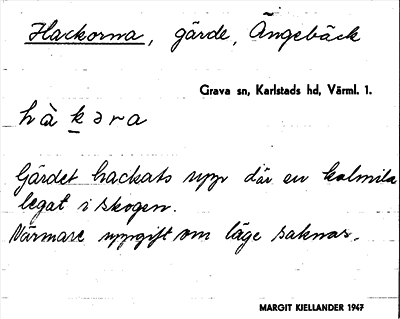 Hackorna, gärde, Ängebäck
Grava sn, Karlstads hd, Värml. 1.
hàk̲ɘra
Gärdet hackats upp där en kolmila
legat i skogen.
Närmare uppgift om läge saknas.
MARGIT KJELLANDER 1947